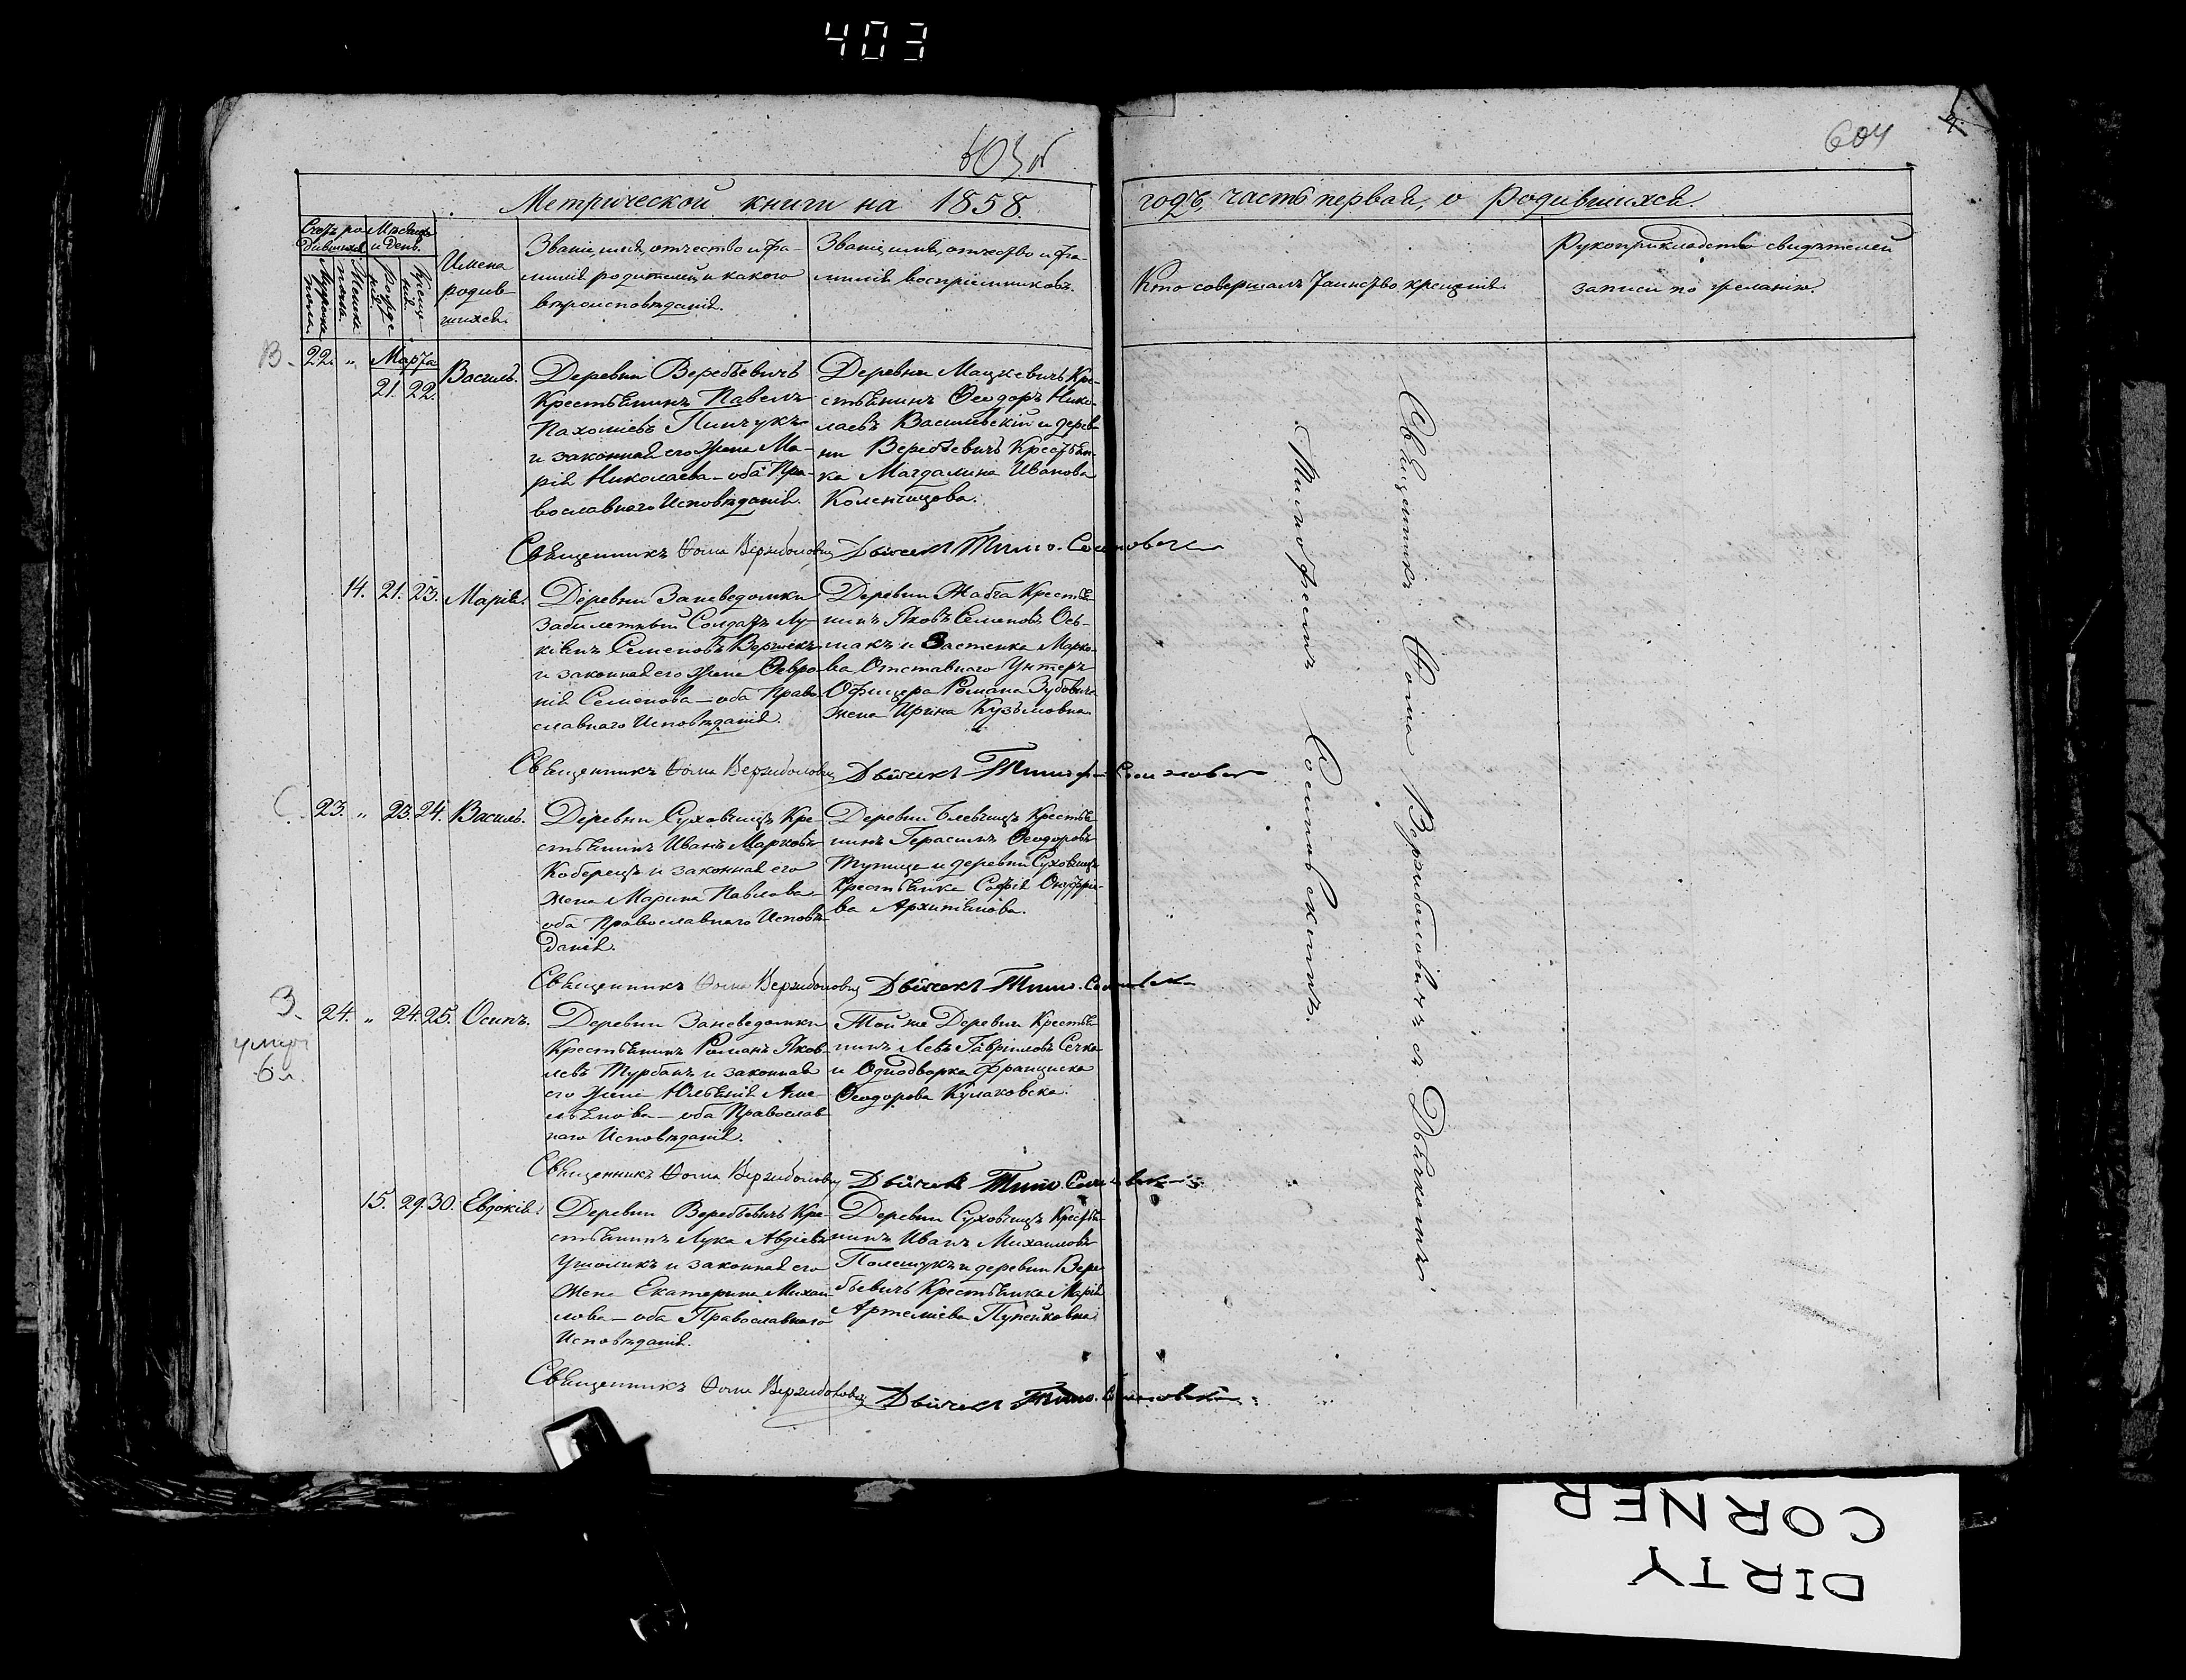 403
603 об
604
Метрической книги на 1858.
годъ, часть первая, о родившихся.
Счетъ ро-
дившихся
Мужеска
пола.
Женска
пола.
Мѣсяцъ
и день.
Рожде-
нія.
Креще-
нія.
Имена
родив-
шихся.
Званіе, имя, отчество и фа-
милія родителей, и какого
вѣроисповѣданія.
Званіе, имя, отчество и фа-
милія воспріемниковъ.
Кто совершалъ таинство крещенія.
Рукоприкладство свидѣтелей
записи по желанію.
В.
22. „ Марта
21. 22.
Василь.
Деревни Веребьевичъ
Крестьянинъ Павелъ
Пахоміевъ Пинчукъ
и законная его жена Ма-
рія Николаева – оба Пра-
вославнаго Исповѣданія.
Деревни Мацкевичъ Кре-
стьянинъ Ѳеодоръ Нико-
лаевъ Василевскій и дерев-
ни Веребьевичъ Крестьян-
ка Магдалина Иванова
Коленчицова.
Священникъ Ѳома Вержболовичъ Дьячекъ Тимо. Сосиновскій
14. 21. 23. Марія.
Деревни Заневедомки
Забилетный Солдатъ Лу-
кіянъ Семеновъ Воршекъ
и законная его жена Февро-
нія Семенова – оба Право-
славнаго Исповѣданія.
Деревни Жабча Крестья-
нинъ Яковъ Семеновъ Ось-
макъ и Застенка Марко-
ва Отставнаго Унтеръ
Офицера Романа Зубовича
жена Ирина Кузьмовна
Священникъ Ѳома Вержболовичъ Дьячекъ Тимоф. Сосиновскій
С.
23. „ 23. 24. Василь.
Деревни Суховчицъ Кре-
стьянинъ Иванъ Марковъ
Коберецъ и законная его
жена Марина Павлова
оба Православнаго Исповѣ-
данія.
Деревни Блевчицъ Крестья-
нинъ Герасимъ Ѳеодоровъ
Тупице и деревни Суховчицъ
Крестьянка Софія Онуфріе-
ва Архипёнова.
Священникъ Ѳома Вержболовичъ Дьячекъ Тимо. Сосиновскій
З.
умеръ
24. „ 24. 25. Осипъ.
Деревни Заневедомки
Крестьянинъ Романъ Яков-
левъ Турбанъ и законная
его жена Юльянія Аме-
льянова – оба Православ-
наго Исповѣданія.
Той же Деревни Крестья-
нинъ Левъ Гавріиловъ Сечко
и Однодворка Франциска
Ѳеодорова Кулаковска.
Священникъ Ѳома Вержболовичъ Дьячекъ Тимо. Сосиновскій
15. 29. 30. Евдокія.
Деревни Веребьевичъ Кре-
стьянинъ Лука Авдіевъ
Ушоликъ и законная его
Жена Екатерина Михай-
лова – оба Православнаго
Исповѣданія.
Деревни Суховчицъ Крестья-
нинъ Иванъ Михаиловъ
Полещукъ и деревни Вере-
бьевичъ Крестьянка Марія
Артеміева Пупейковна
Священникъ Ѳома Вержболовичъ Дьячекъ Тимо. Сосиновскій
Священникъ Ѳома Вержболовичъ съ Дьячкомъ
Тимофеемъ Сосиновскимъ.
DIRTY
CORNER